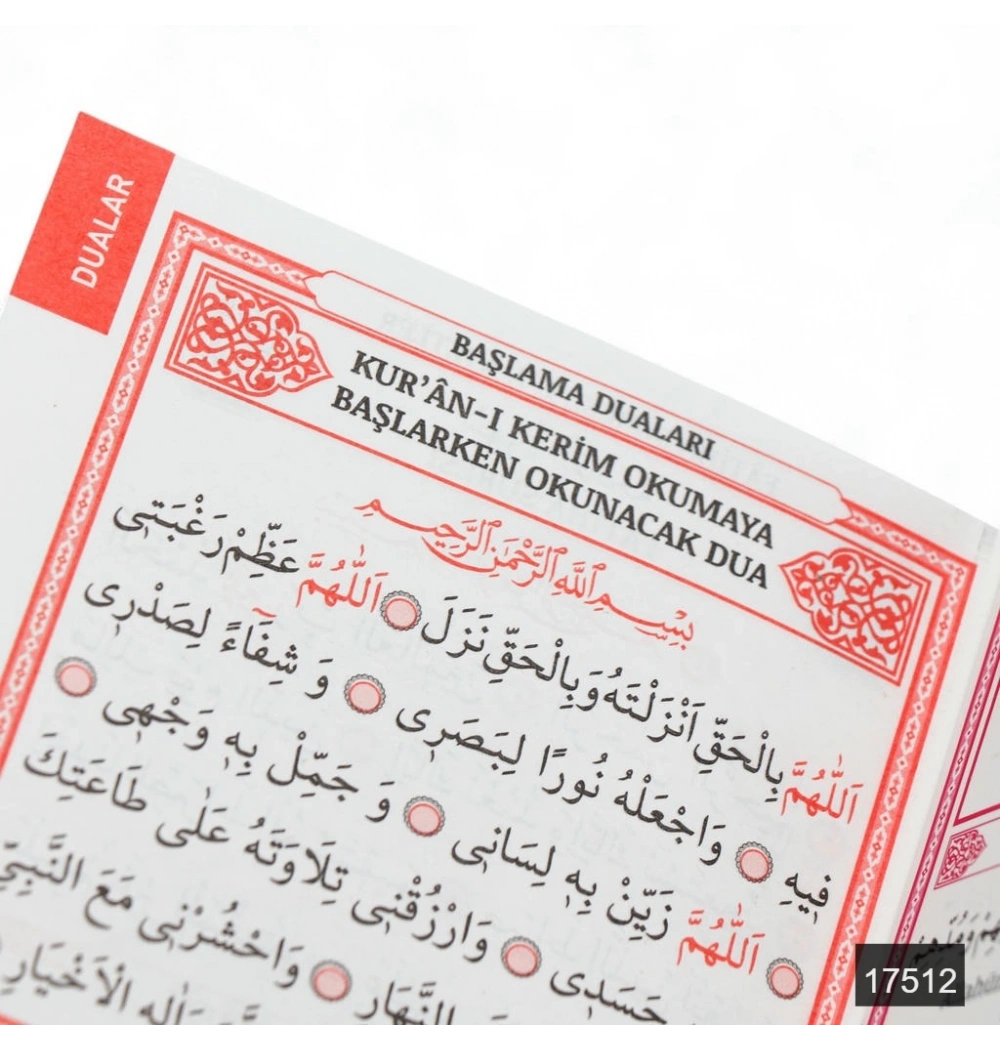 DUALAR
BAŞLAMA DUALARI
KUR’ÂN-I KERİM OKUMAYA
BAŞLARKEN OKUNACAK DUA
بِسْمِ اللّٰهِ الرَّحْمٰنِ الرَّحِيمِ
اَللّٰهُمَّ بِالْحَقِّ اَنْزَلْتَهُ وَبِالْحَقِّ نَزَلَ اَللّٰهُمَّ عَظِّمْ رَغْبَتٖى
فٖيهِ وَاجْعَلْهُ نُورًا لِبَصَرٖى وَ شِفَٓاءً لِصَدْرٖى
اَللّٰهُمَّ زَيِّنْ بِهٖ لِسَانٖى وَ جَمِّلْ بِهٖ وَجْهٖى
حَسَدٖى وَارْزُقْنٖى تِلَاوَتَهُ عَلٰى طَاعَتِكَ
النَّهَارِ وَاحْشُرْنٖى مَعَ النَّبِىِّ
وَاٰلِهِ الْاَخْيَارِ
17512